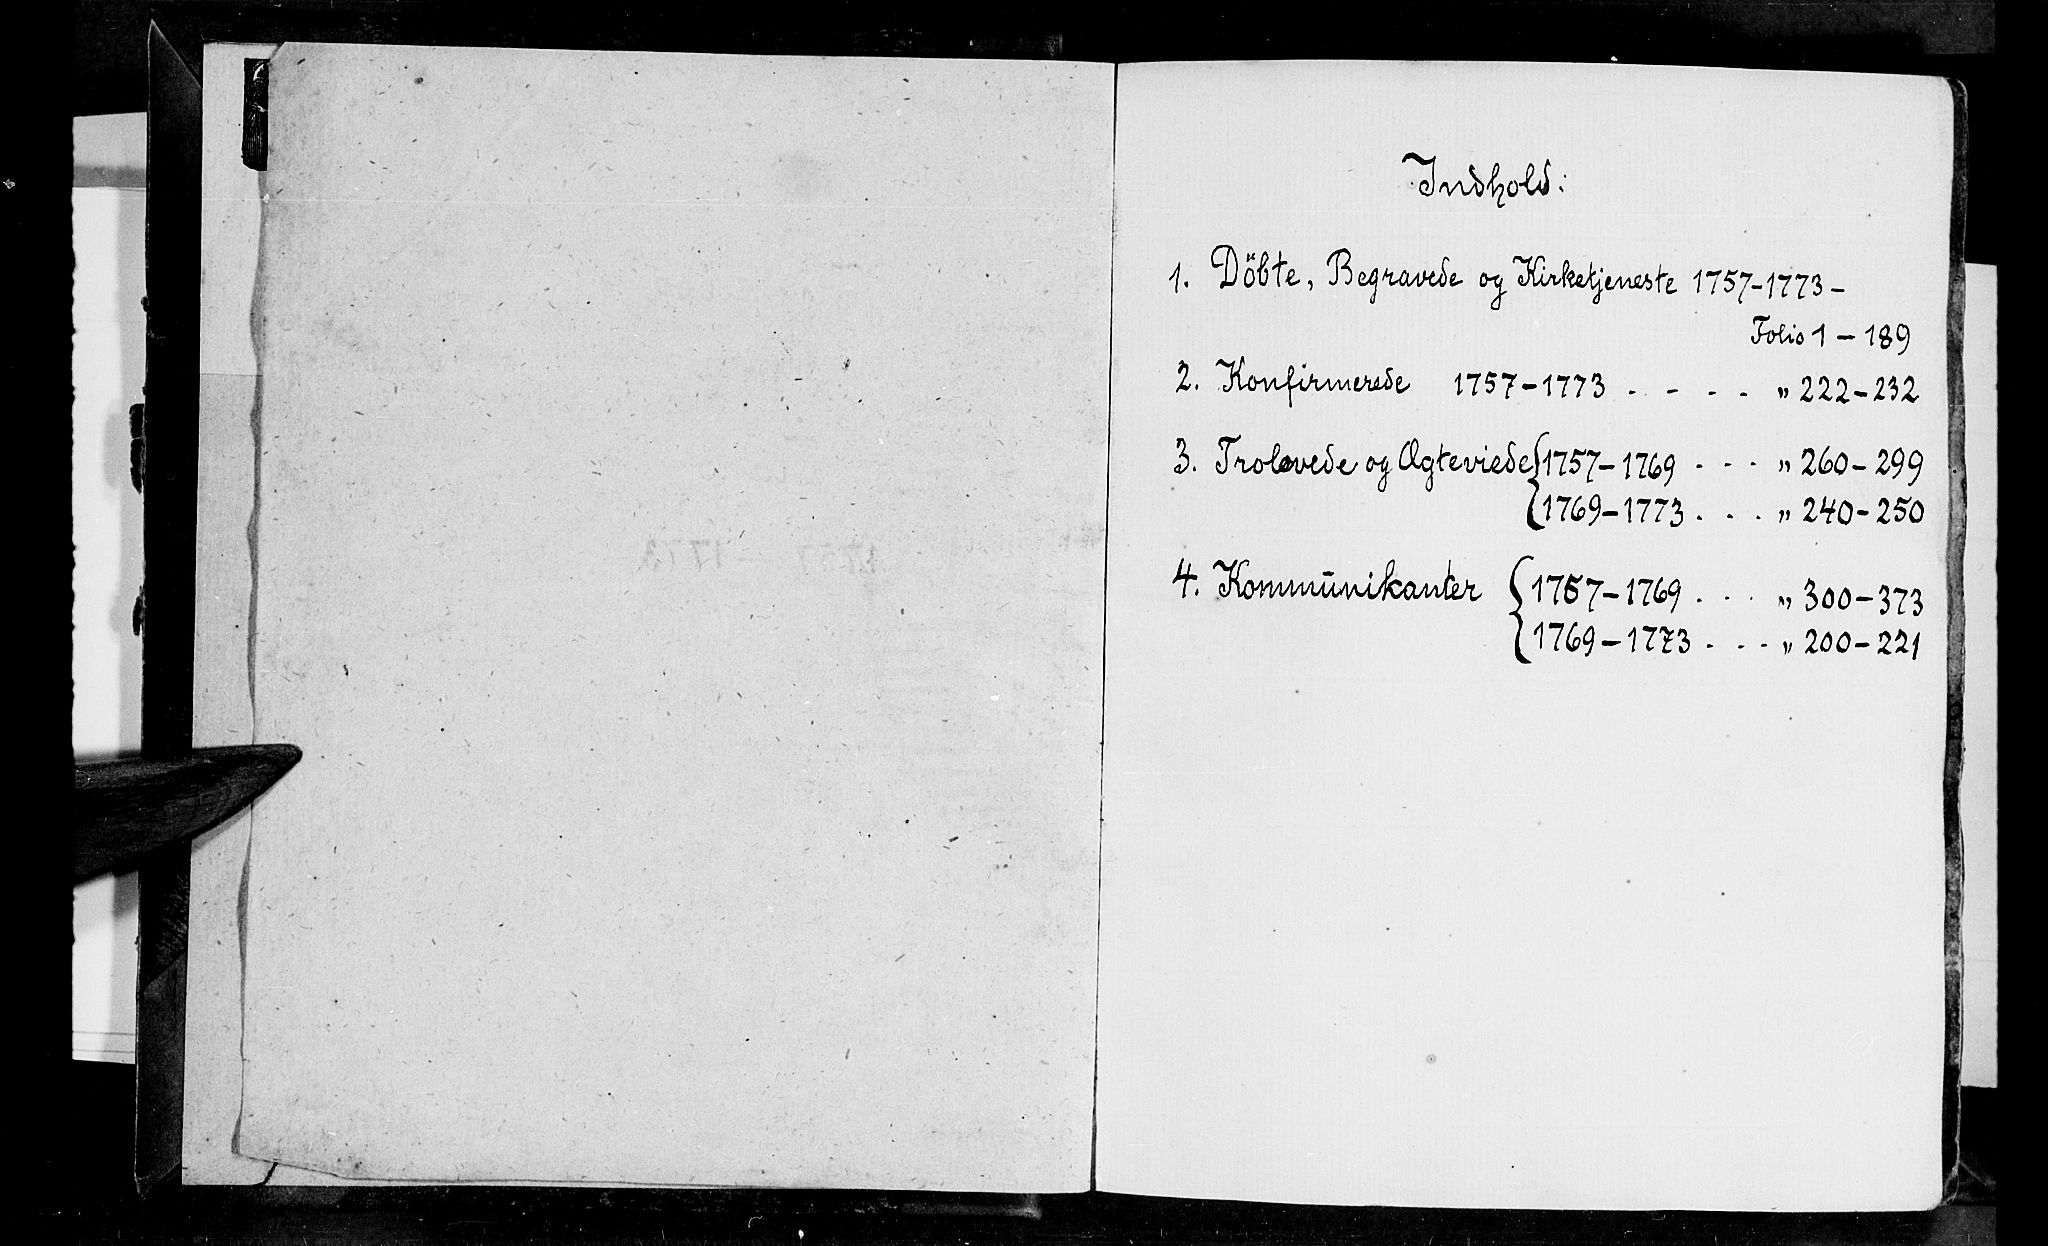 Indhold:
1. Döbte, Begravede og Kirketjeneste 1757-1773 -
Folio 1 - 189
2. Konfirmerede 1757-1773 . - . . „ 222-232
3. Trolovede og Ægteviede { 1757-1769 . . . „ 260-299
{ 1769-1773 . . . „ 240-250
4. Kommūnikanter { 1757-1769 . . . „ 300-373
{ 1769-1773 . . . „ 200-221